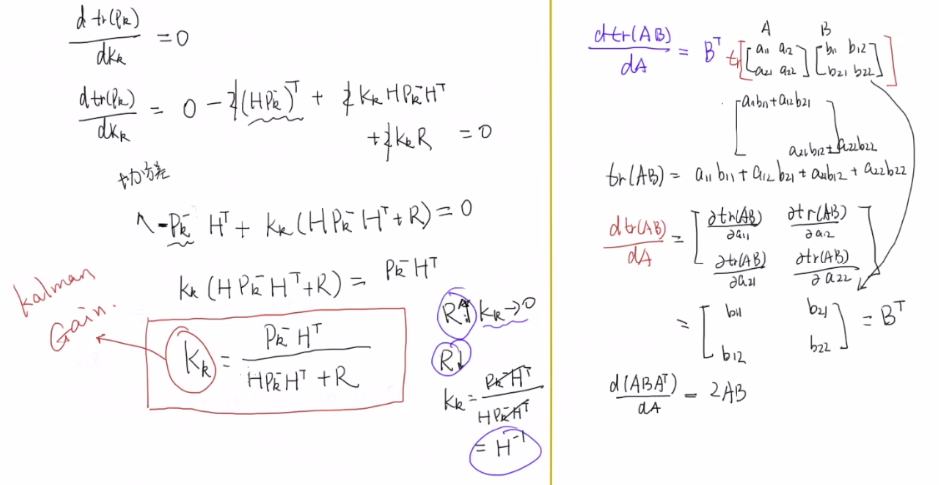 d tr(Pₖ)/dKₖ = 0
d tr(Pₖ)/dKₖ = 0 - 2(HPₖ⁻)ᵀ + 2KₖHPₖ⁻Hᵀ
+2KₖR = 0
协方差
-Pₖ⁻ Hᵀ + Kₖ(HPₖ⁻Hᵀ+R) = 0
Kₖ(HPₖ⁻Hᵀ+R) = Pₖ⁻Hᵀ
Kalman
Gain.
Kₖ = Pₖ⁻Hᵀ/(HPₖ⁻Hᵀ + R)
R↑ Kₖ→0
R↓
Kₖ = Pₖ⁻Hᵀ/HPₖ⁻Hᵀ
= H⁻¹
A B
d tr(AB)/dA = Bᵀ tr[[a₁₁ a₁₂] [b₁₁ b₁₂]
[a₂₁ a₂₂] [b₂₁ b₂₂]]
[a₁₁b₁₁+a₁₂b₂₁
a₂₁b₁₂+a₂₂b₂₂]
tr(AB) = a₁₁b₁₁ + a₁₂b₂₁ + a₂₁b₁₂ + a₂₂b₂₂
d tr(AB)/dA = [∂tr(AB)/∂a₁₁ ∂tr(AB)/∂a₁₂
∂tr(AB)/∂a₂₁ ∂tr(AB)/∂a₂₂]
= [b₁₁ b₂₁
b₁₂ b₂₂] = Bᵀ
d(ABAᵀ)/dA = 2AB